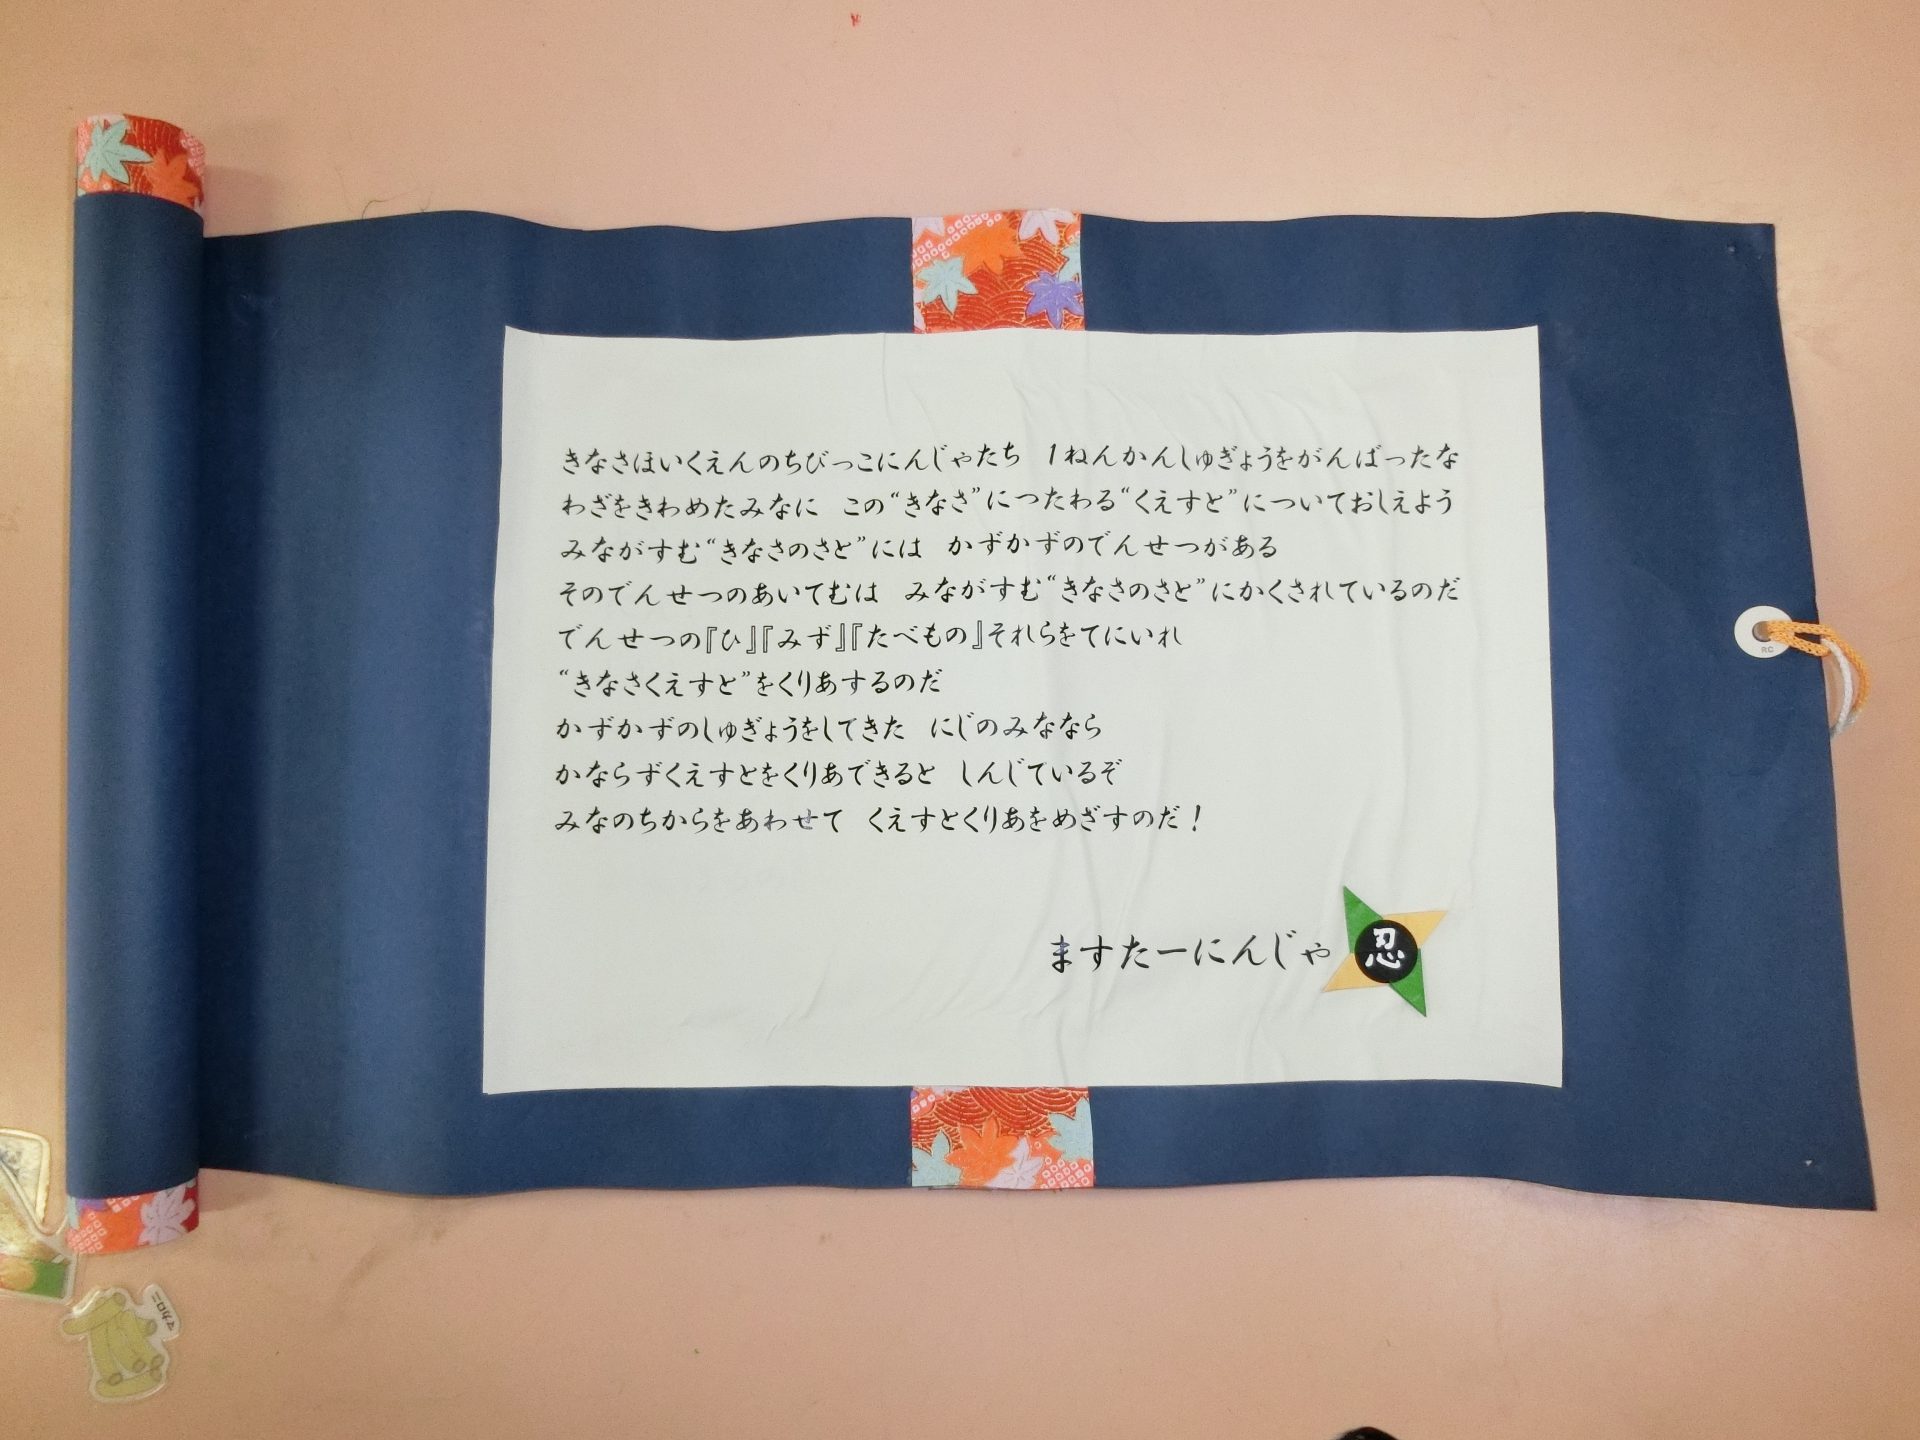 きなさほいくえんのちびっこにんじゃたち　1ねんかんしゅぎょうをがんばったな
わざをきわめたみなに　この“きなさ”につたわる“くえすと”についておしえよう
みながすむ“きなさのさと”には　かずかずのでんせつがある
そのでんせつのあいてむは　みながすむ“きなさのさと”にかくされているのだ
でんせつの『ひ』『みず』『たべもの』それらをてにいれ
“きなさくえすと”をくりあするのだ
かずかずのしゅぎょうをしてきた　にじのみなるなら
かならずくえすとをくりあできると　しんじているぞ
みなのちからをあわせて　くえすとくりあをめざすのだ！
ますたーにんじゃ
忍
RC